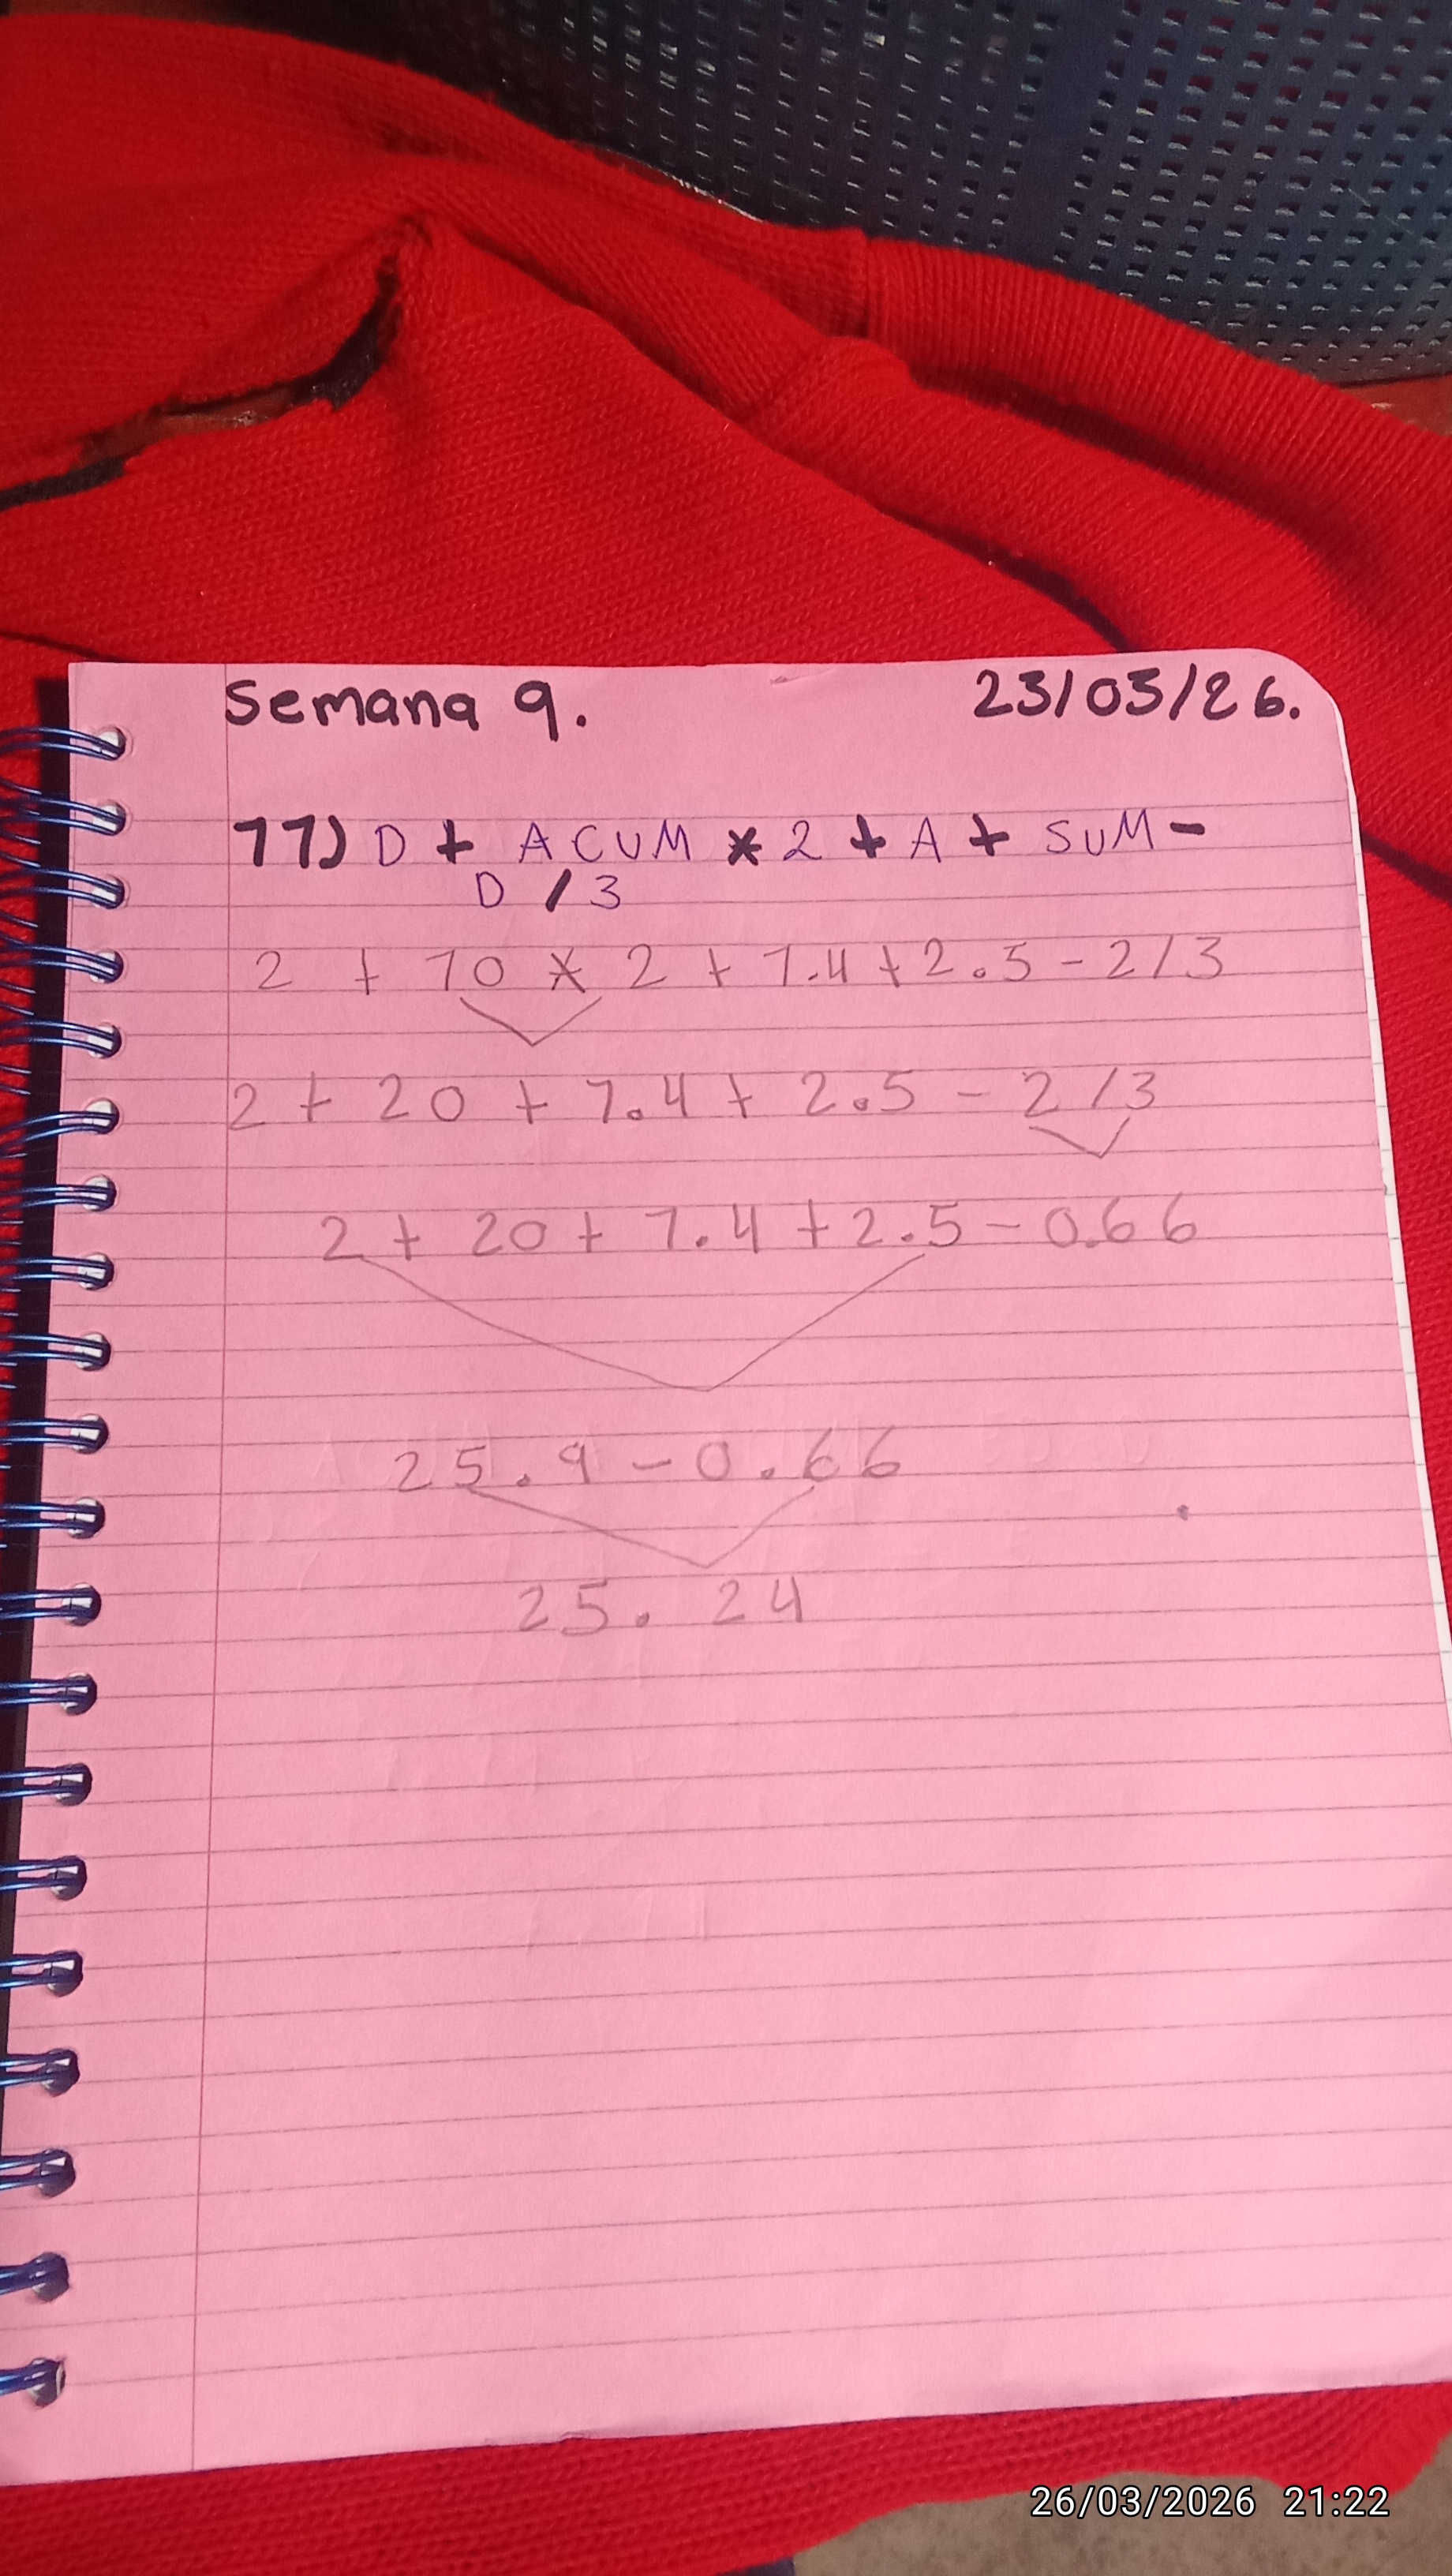 Semana 9. 23/03/26.
11) D + ACUM * 2 + A + SUM -
D / 3
2 + 10 * 2 + 1.4 + 2.5 - 2/3
2 + 20 + 1.4 + 2.5 - 2/3
2 + 20 + 1.4 + 2.5 - 0.66
25.9 - 0.66
25.24
26/03/2026 21:22